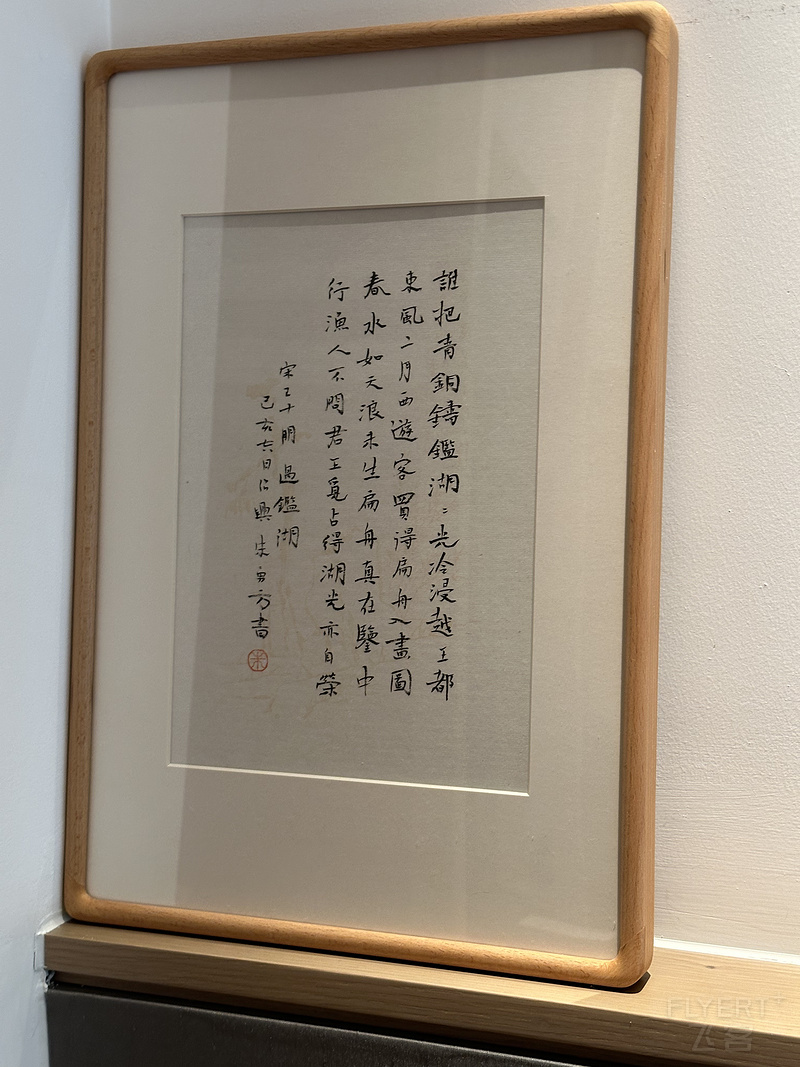 誰把青銅鑄鑑湖〻光冷浸越王都
東風二月西遊客買得扁舟入畫圖
春水如天浪未生扁舟真在鑒中
行漁人不問君王覓占得湖光亦自榮
宋 王十朋 過鑑湖
己亥六日於興 朱勇方書
朱
FLYERT
飞客